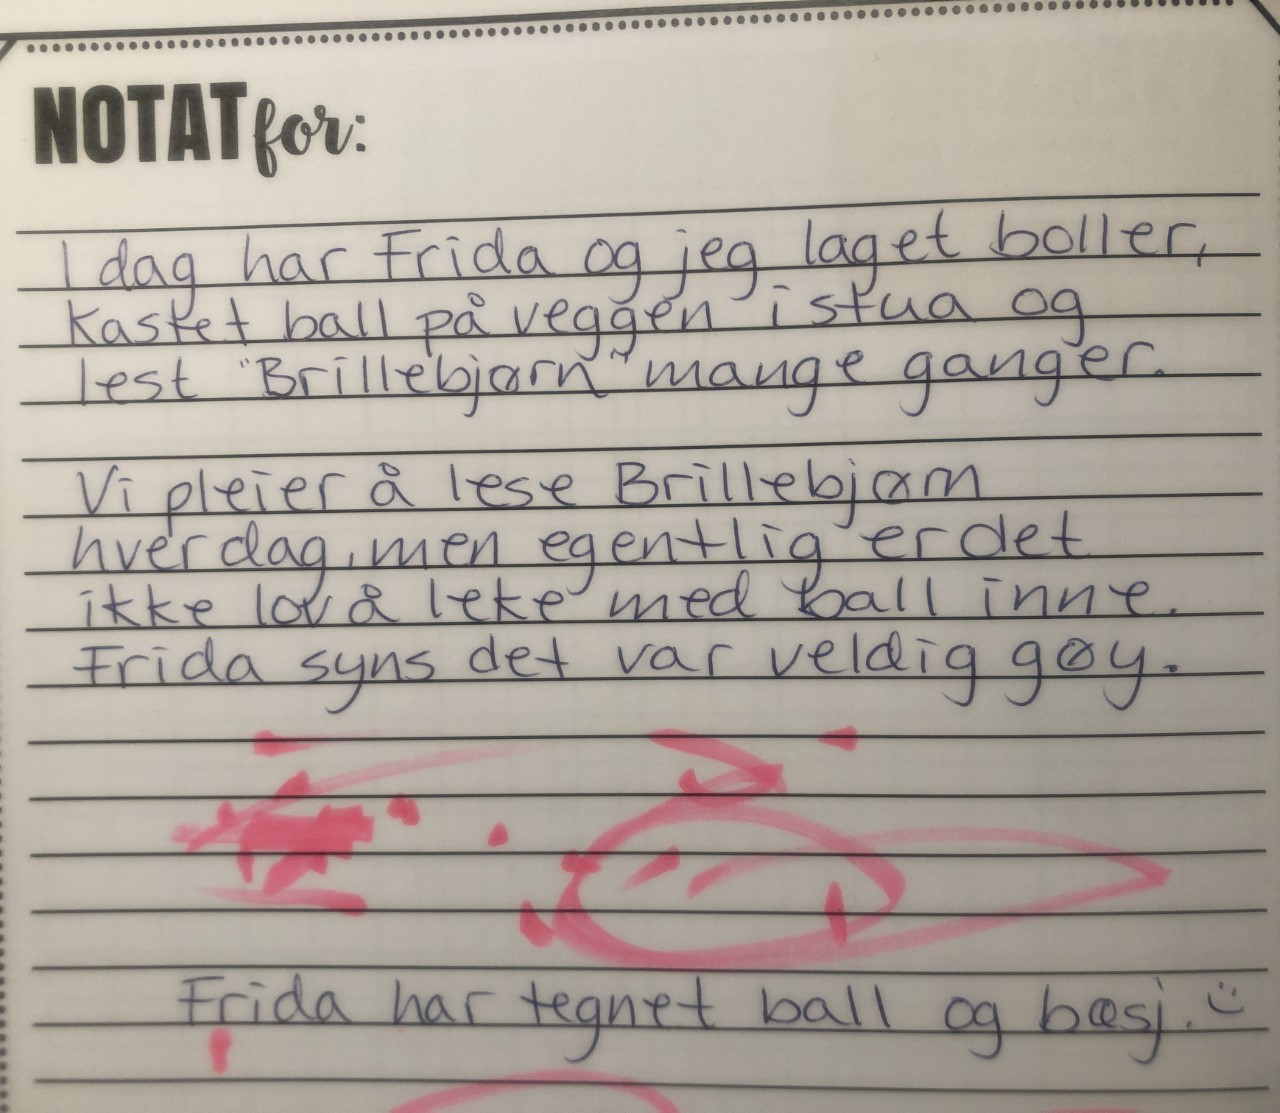 NOTAT for:
I dag har Frida og jeg laget boller,
kastet ball på veggen i stua og
lest "Brillebjørn" mange ganger.
Vi pleier å lese Brillebjørn
hver dag, men egentlig er det
ikke lov å leke med ball inne.
Frida syns det var veldig gøy.
Frida har tegnet ball og bæsj. :)